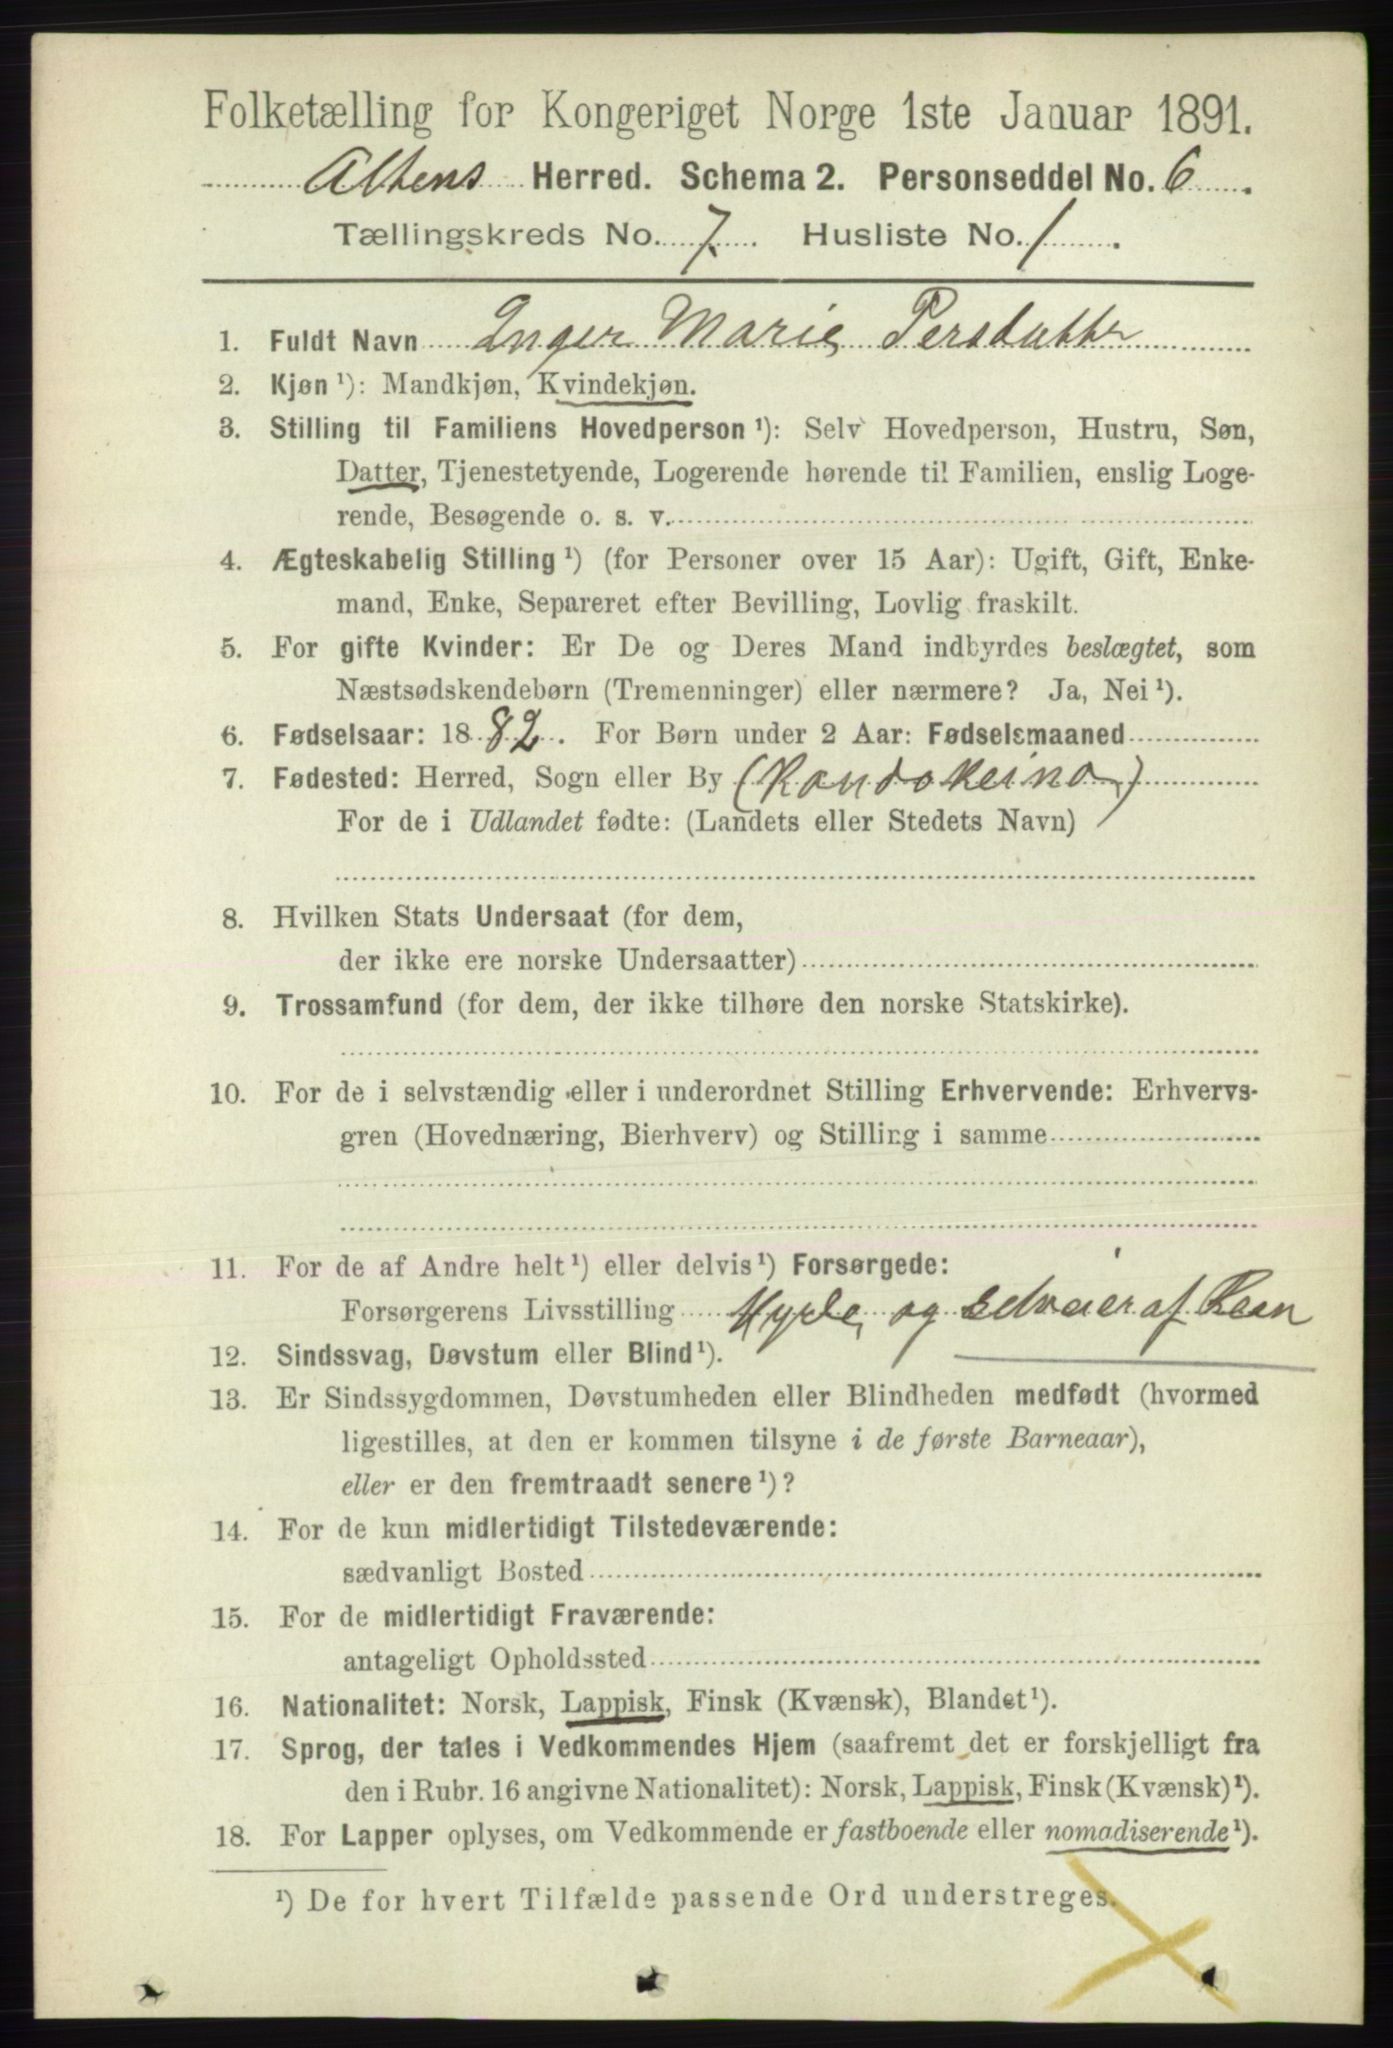 Folketælling for Kongeriget Norge 1ste Januar 1891.
Altens Herred. Schema 2. Personseddel No. 6.
Tællingskreds No. 7. Husliste No. 1.
1. Fuldt Navn Inger Marie Persdattr
2. Kjøn ¹): Mandkjøn, Kvindekjøn.
3. Stilling til Familiens Hovedperson ¹): Selv Hovedperson, Hustru, Søn,
Datter, Tjenestetyende, Logerende hørende til Familien, enslig Loge-
rende, Besøgende o. s. v.
4. Ægteskabelig Stilling ¹) (for Personer over 15 Aar): Ugift, Gift, Enke-
mand, Enke, Separeret efter Bevilling, Lovlig fraskilt.
5. For gifte Kvinder: Er De og Deres Mand indbyrdes beslægtet, som
Næstsødskendebørn (Tremenninger) eller nærmere? Ja, Nei ¹).
6. Fødselsaar: 1882. For Børn under 2 Aar: Fødselsmaaned
7. Fødested: Herred, Sogn eller By (Koudokeino)
For de i Udlandet fødte: (Landets eller Stedets Navn)
8. Hvilken Stats Undersaat (for dem,
der ikke ere norske Undersaatter)
9. Trossamfund (for dem, der ikke tilhøre den norske Statskirke).
10. For de i selvstændig eller i underordnet Stilling Erhvervende: Erhvervs-
gren (Hovednæring, Bierhverv) og Stilling i samme
11. For de af Andre helt ¹) eller delvis ¹) Forsørgede:
Forsørgerens Livsstilling Hyrde og edveier af Reen
12. Sindssvag, Døvstum eller Blind ¹).
13. Er Sindssygdommen, Døvstumheden eller Blindheden medfødt (hvormed
ligestilles, at den er kommen tilsyne i de første Barneaar),
eller er den fremtraadt senere ¹)?
14. For de kun midlertidigt Tilstedeværende:
sædvanligt Bosted
15. For de midlertidigt Fraværende:
antageligt Opholdssted
16. Nationalitet: Norsk, Lappisk, Finsk (Kvænsk), Blandet ¹).
17. Sprog, der tales i Vedkommendes Hjem (saafremt det er forskjelligt fra
den i Rubr. 16 angivne Nationalitet): Norsk, Lappisk, Finsk (Kvænsk) ¹).
18. For Lapper oplyses, om Vedkommende er fastboende eller nomadiserende ¹).
¹) De for hvert Tilfælde passende Ord understreges.